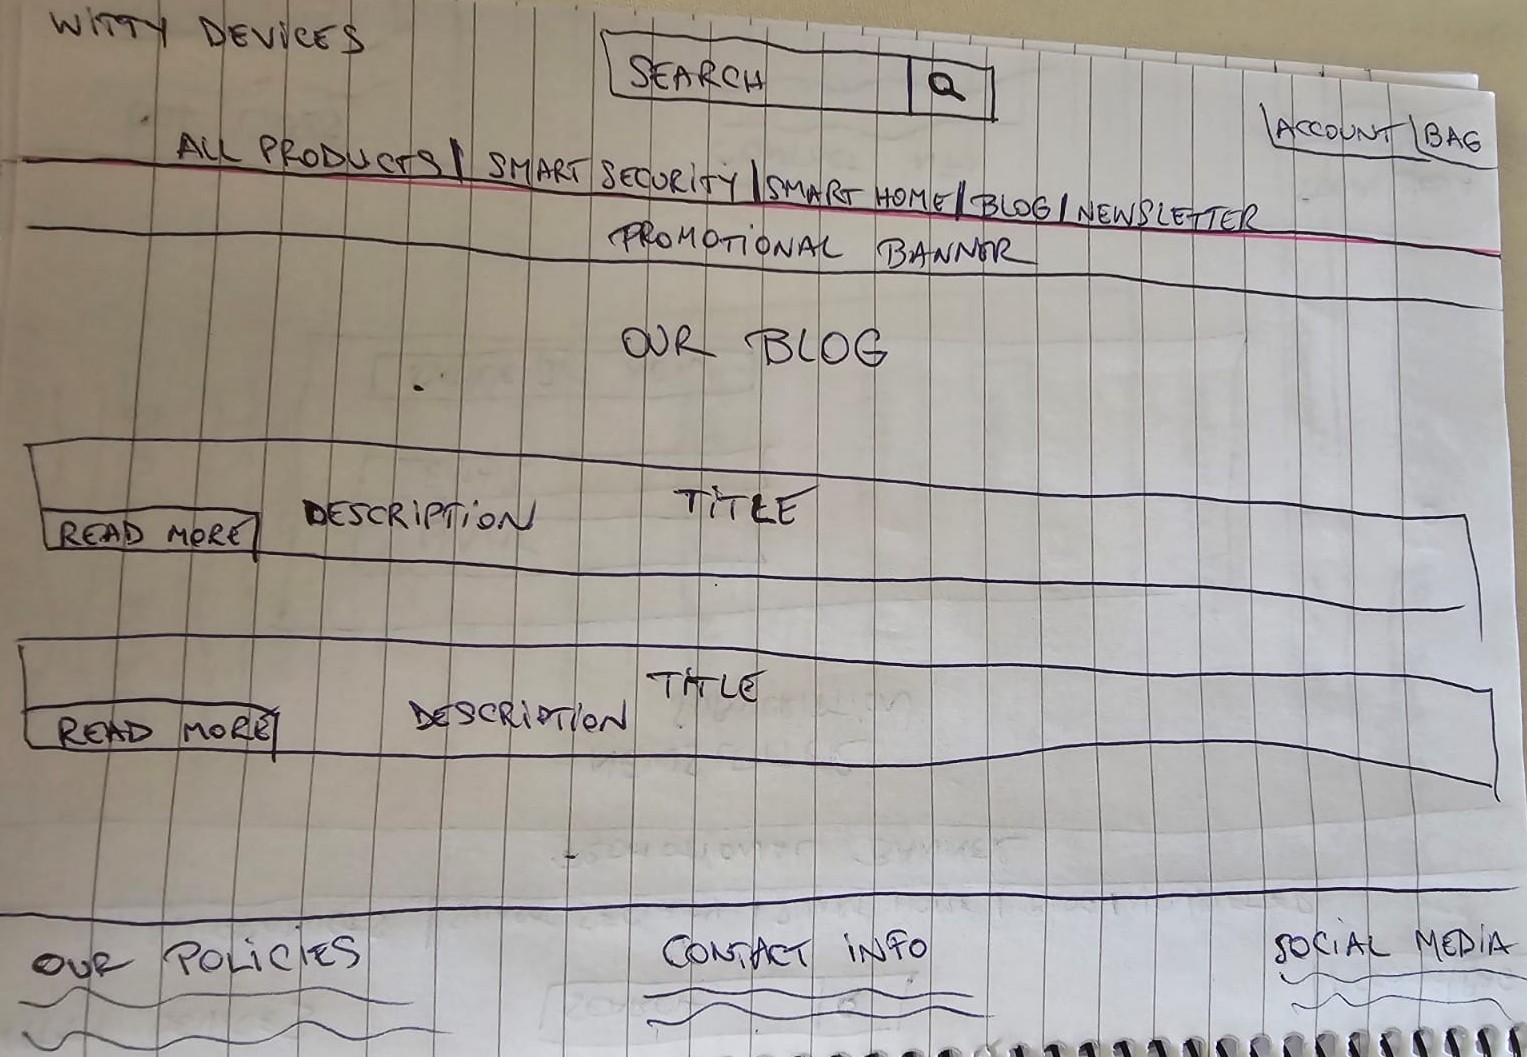 WITTY DEVICES
SEARCH
ACCOUNT | BAG
ALL PRODUCTS | SMART SECURITY | SMART HOME | BLOG | NEWSLETTER
PROMOTIONAL BANNER
OUR BLOG
TITLE
DESCRIPTION
READ MORE
TITLE
DESCRIPTION
READ MORE
OUR POLICIES
CONTACT INFO
SOCIAL MEDIA